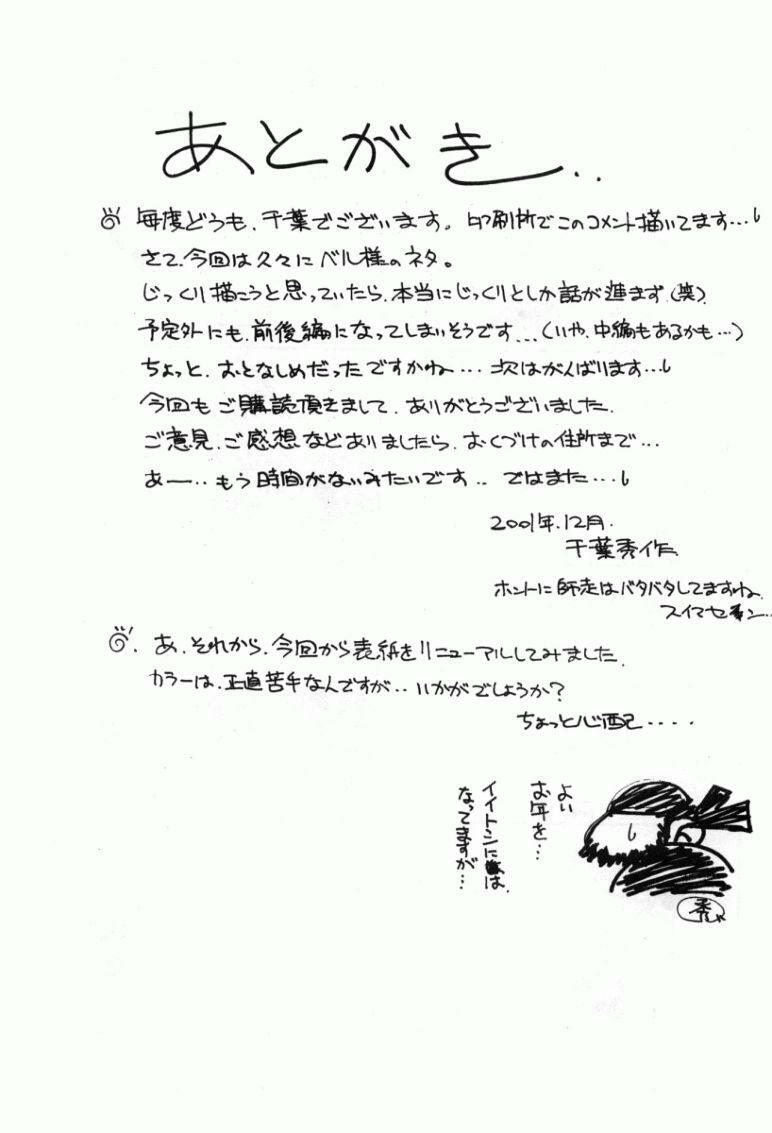 あとがき..
毎度どうも、千葉でございます。印刷所でこのコメント描いてます…
さて、今回は久々にベル様のネタ。
じっくり描こうと思っていたら、本当にじっくりとしか話が進まず(笑).
予定外にも、前後編になってしまいそうです...(いや、中編もあるかも…)
ちょっと、おとなしめだったですかね…. 次はがんばります…
今回もご購読頂きまして、ありがとうございました.
ご意見、ご感想などありましたら、おくづけの住所まで…
あー‥もう時間がないみたいです.. ではまた…
2001年.12月.
千葉秀作
ホントに師走はバタバタしてますね.
スイマセン…
あ、それから、今回から表紙をリニューアルしてみました.
カラーは、正直苦手なんですが‥いかがでしょうか?
ちょっと心配‥‥
よい
お年を…
イイトシには
なってますが…
秀